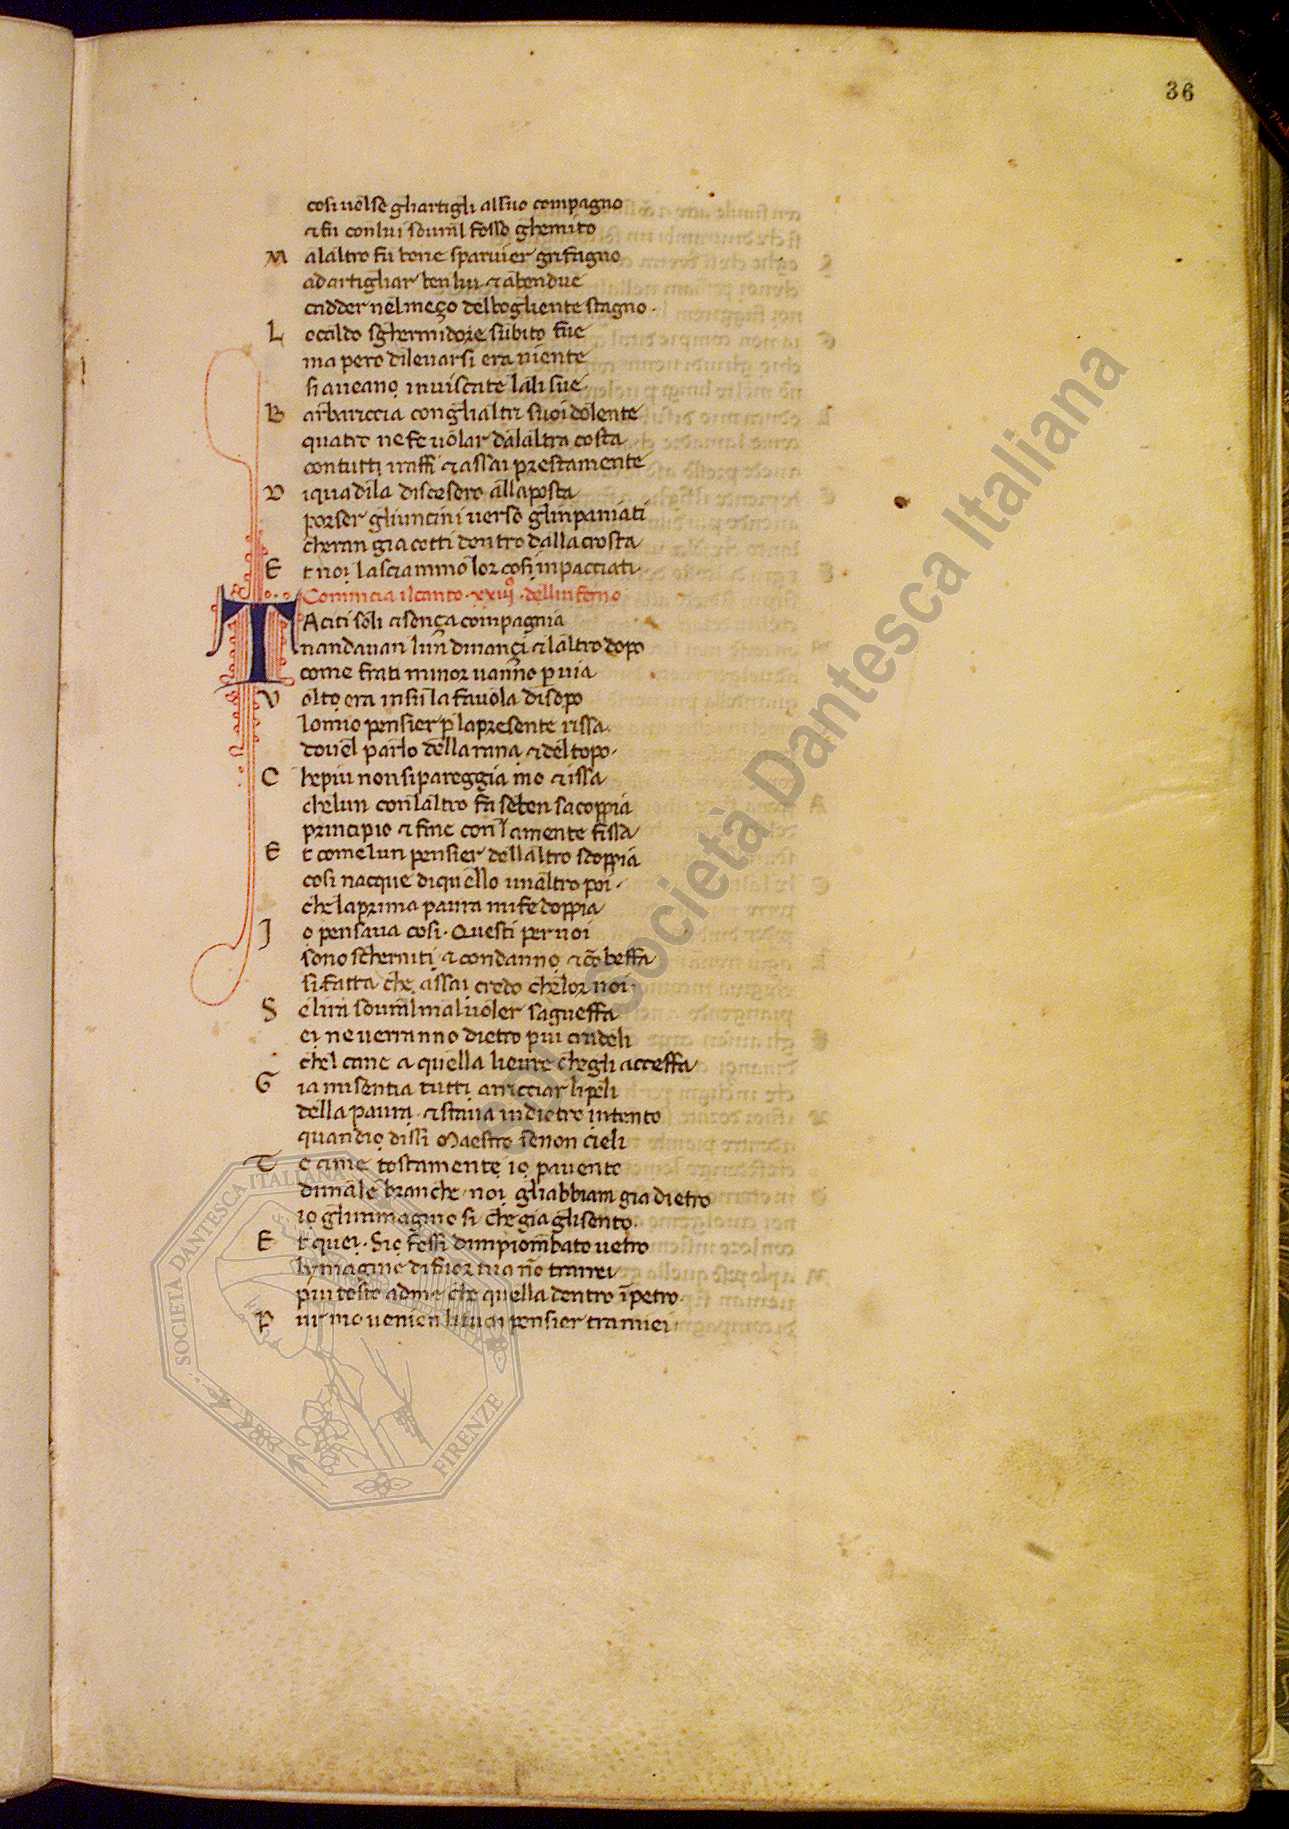 36
cosi volse ghartigli alsuo compagno
& fu conlui sovral fosso ghemito
M alaltro fu bene sparvier grifagno
adartigliar ben lui & abendue
cadder nelmeço delbogliente stagno.
L ocaldo sghermidore subito fue
ma pero dilevarsi era niente
si aveano inviscate lali sue.
B arbariccia conglialtri suoi dolente
quatro ne fe volar dalaltra costa
contutti iraffi & assai prestamente
D iqua dila discesero allaposta
porser gliuncini verso glinpaniati
cheran gia cotti dentro dalla crosta
E t noi lasciammo lor cosi inpacciati.
Comincia ilcanto .xxiijº. dellinferno
TAciti soli & sença compagnia
nandavan lun dinançi & laltro dopo
come frati minor vanno p via
V olto era insu la favola disopo
lomio pensier p lapresente rissa.
dovel parlo della rana & deltopo.
C hepiu nonsipareggia mo & issa
chelun conlaltro fa seben sacoppia
principio & fine conlamente fissa
E t comelun pensier dellaltro scoppia
cosi nacque diquello unaltro poi.
che laprima paura mife doppia
I o pensava cosi. Questi per noi
sono scherniti & condanno & cō beffa
si fatta che assai credo chelor noi.
S e lira sovral malvoler sagueffa
ei ne verranno dietro piu crudeli
chel cane a quella lievre chegli acceffa
G ia misentia tutti arricciar lipeli
della paura. & stava indietro intento
quandio dissi Maestro senon cieli
T e & me tostamente io pavento
dimale branche. noi gliabbiam gia dietro
io glimmagino si che gia glisento.
E t quei. Sio fossi dimpiombato vetro
lymagine difuor tua nō trarrei
piu tosto adme che quella dentro īpetro.
P ur mo venien lituoi pensier tramiei.
Società Dantesca Italiana
SOCIETÀ DANTESCA ITALIANA
FIRENZE